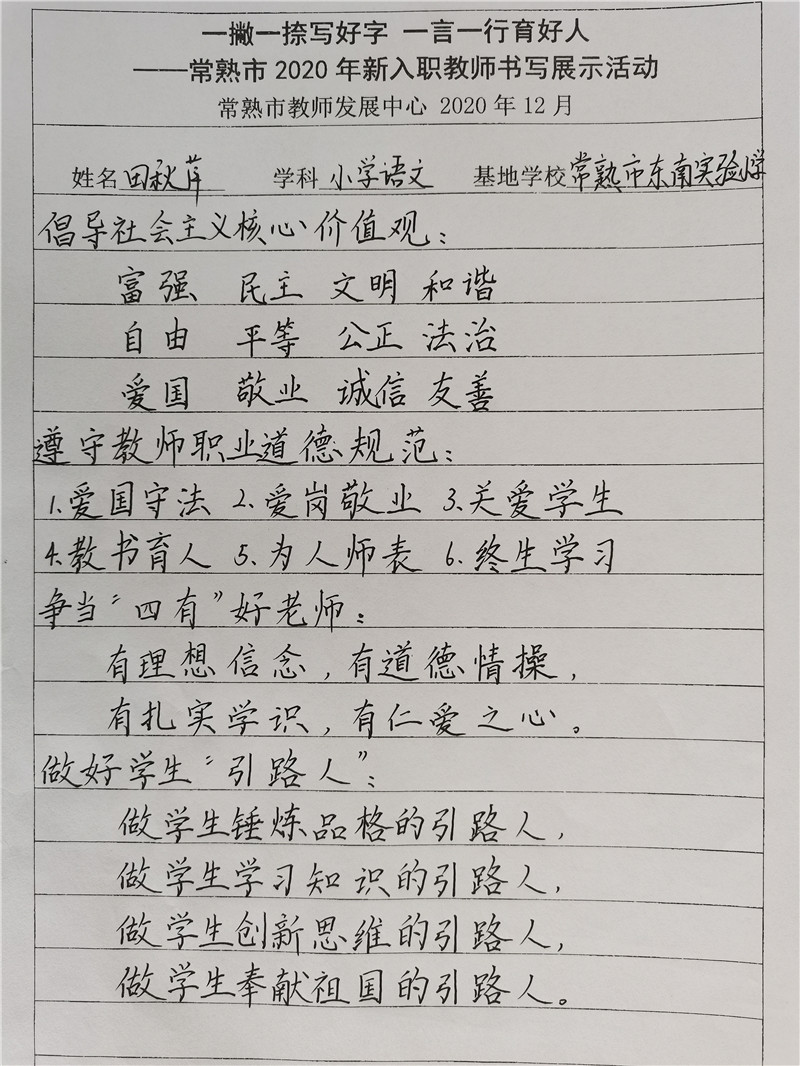 一撇一捺写好字 一言一行育好人
——常熟市2020年新入职教师书写展示活动
常熟市教师发展中心 2020年12月
姓名 田秋萍 学科 小学语文 基地学校 常熟市东南实验小学
倡导社会主义核心价值观：
富强 民主 文明 和谐
自由 平等 公正 法治
爱国 敬业 诚信 友善
遵守教师职业道德规范：
1.爱国守法 2.爱岗敬业 3.关爱学生
4.教书育人 5.为人师表 6.终生学习
争当“四有”好老师：
有理想信念，有道德情操，
有扎实学识，有仁爱之心。
做好学生“引路人”：
做学生锤炼品格的引路人，
做学生学习知识的引路人，
做学生创新思维的引路人，
做学生奉献祖国的引路人。